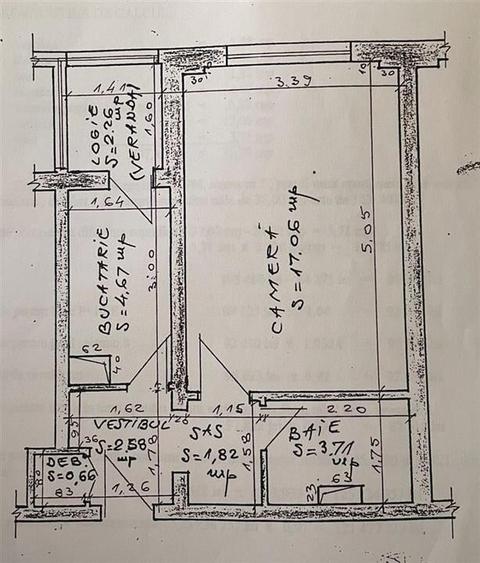 1,41
LOGIE
S=2.26 mp
(VERANDA)
1,60
30
3.39
10
30
1,64
BUCATARIE
S=4,67 mp
3,00
CAMERĂ
S=17.06 mp
5,05
62
40
1,62
26
1,15
2.20
95
VESTIBUL
S=2.58
mp
36
1,78
SAS
S=1,82
mp
1,58
BAIE
S=3.71
mp
1,75
DEB.
S=0,66
80
83
1,26
23
63